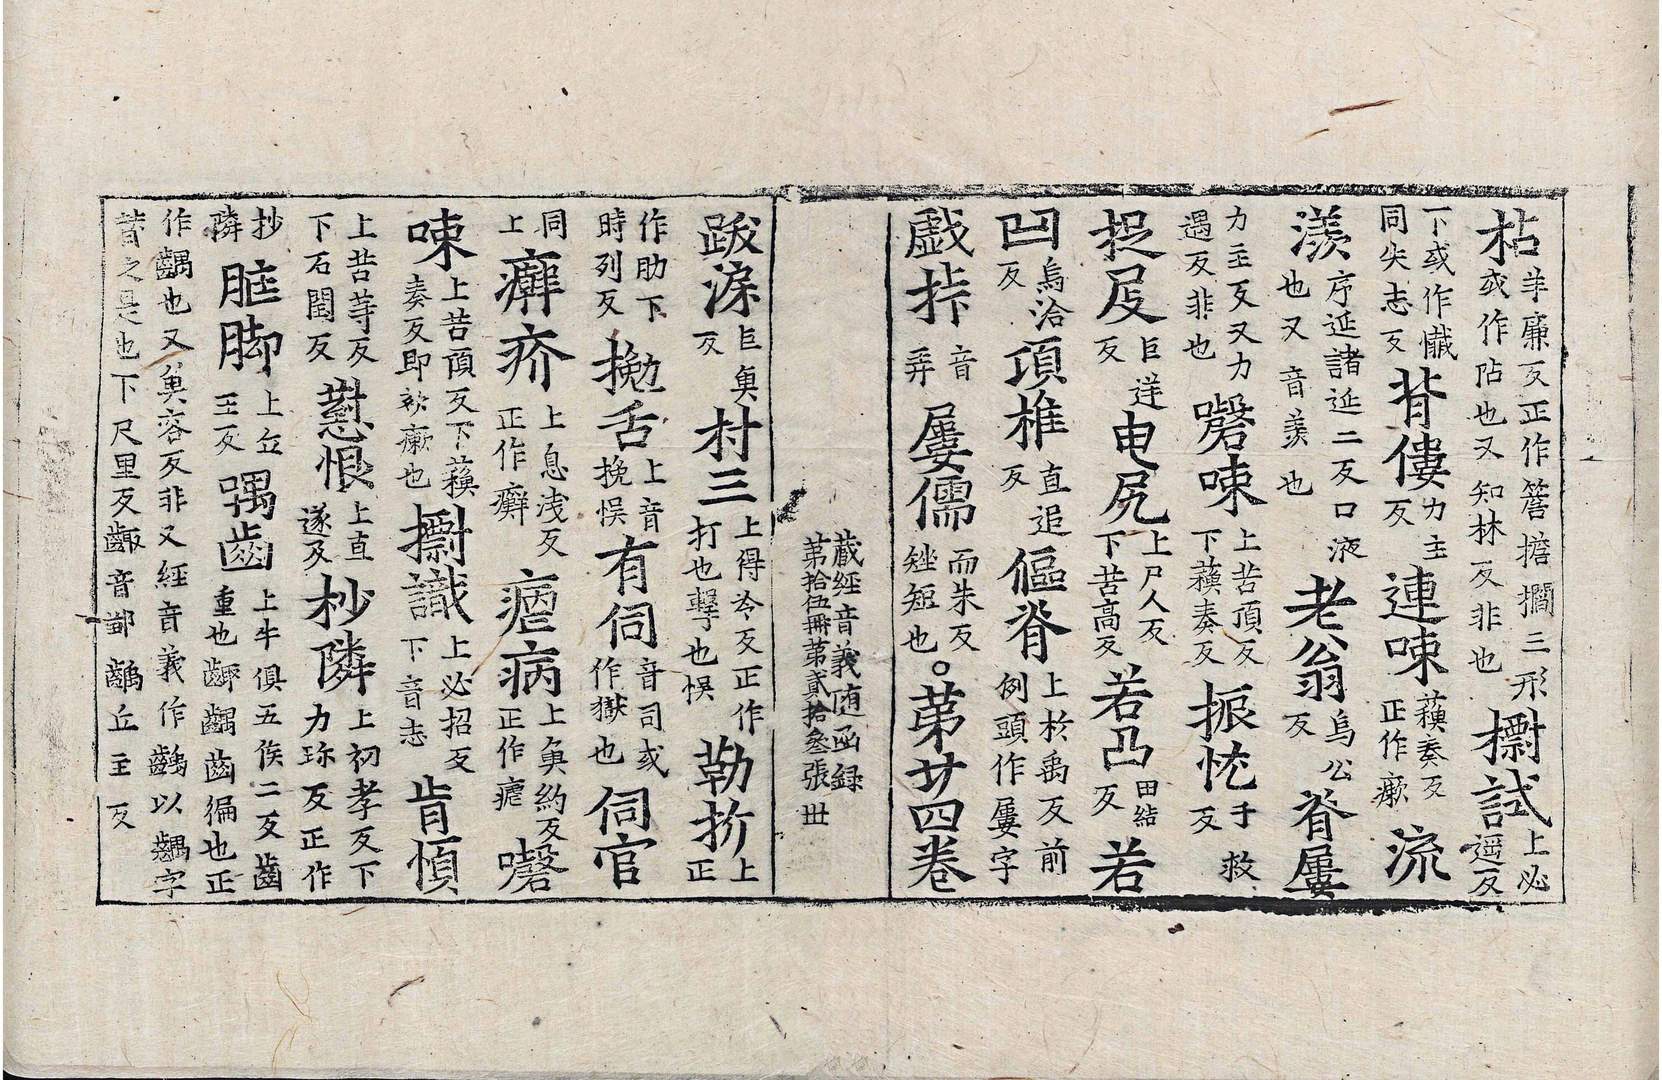 枯羊廉反正作簷擔𣟴三形或作阽也又知林反非也㩰試上必遥反
下或作懺同尖志反背僂力主反連𠲿蘓奏反正作瘷流
漾序延諸延二反口液也又音羨也老翁烏公反脊屢
力主反又力遇反非也磬𠲿上苦頂反下蘓奏反振恍于救反
捉𡱰巨逆反电尻上尸人反下苦高反若凸田結反若
凹烏洽反項椎直追反傴脊上於禹反前例頭作屢字
戲挊音弄屢儒而朱反矬短也。苐廿四卷
藏經音義随函録
苐拾伍冊苐貳拾叄張 丗
跋渿巨𭑈反村三上得冷反正作打也擊也悞勒㧪上正
作肋下時列反㧾舌上音挽悞有伺音司或作獄也伺官
同上癬疥上息浅反正作癬瘧病上𭑈約反正作瘧磬
𠲿上苦頂反下蘓奏反即欬瘷也㩰識上必招反下音志肯慎
上苦䓁反下石閏反懟恨上直遂反杪隣上初孝反下力珎反正作
抄隣䏰脚上丘王反喁齒上牛俱五侯二反齒重也齵齵齒徧也正
作齵也又𭑈容反非又經音義作齲以齲字
替之是也下尺里反齱音鄒齲丘主反